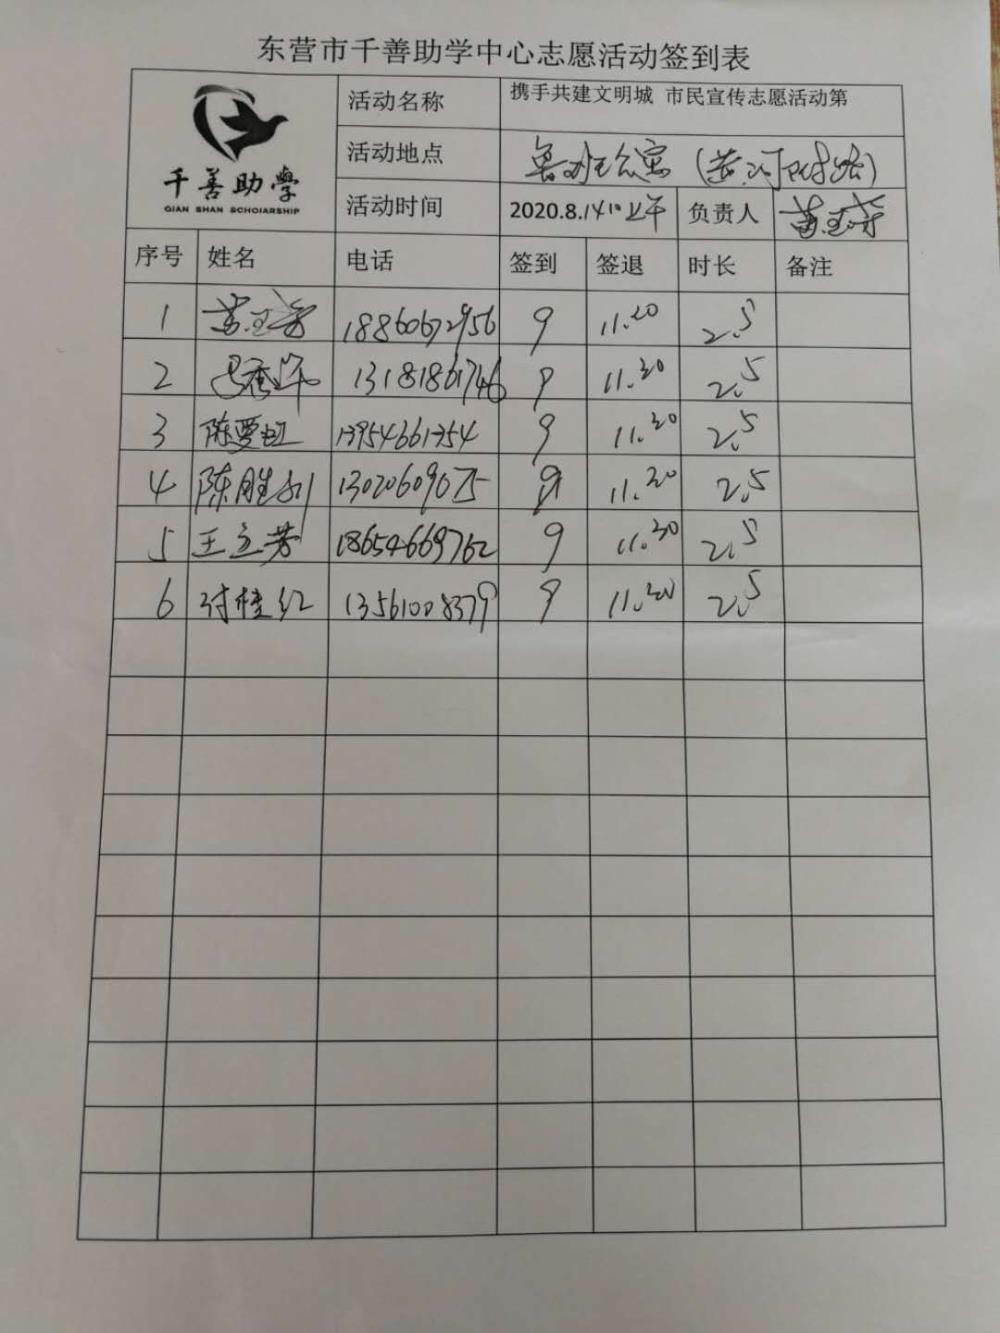 东营市千善助学中心志愿活动签到表
千善助學
QIAN SHAN SCHOIARSHIP
活动名称 携手共建文明城 市民宣传志愿活动第
活动地点 鲁班公寓
活动时间 2020.8.14 上午 负责人
序号 姓名 电话 签到 签退 时长 备注
1 18860672956 9 11.20 2.5
2 13181861746 9 11.30 2.5
3 13954661354 9 11.30 2.5
4 陈胜利 13020609675 9 11.30 2.5
5 王立芳 18654669762 9 11.30 2.5
6 付桂红 13561008379 9 11.30 2.5